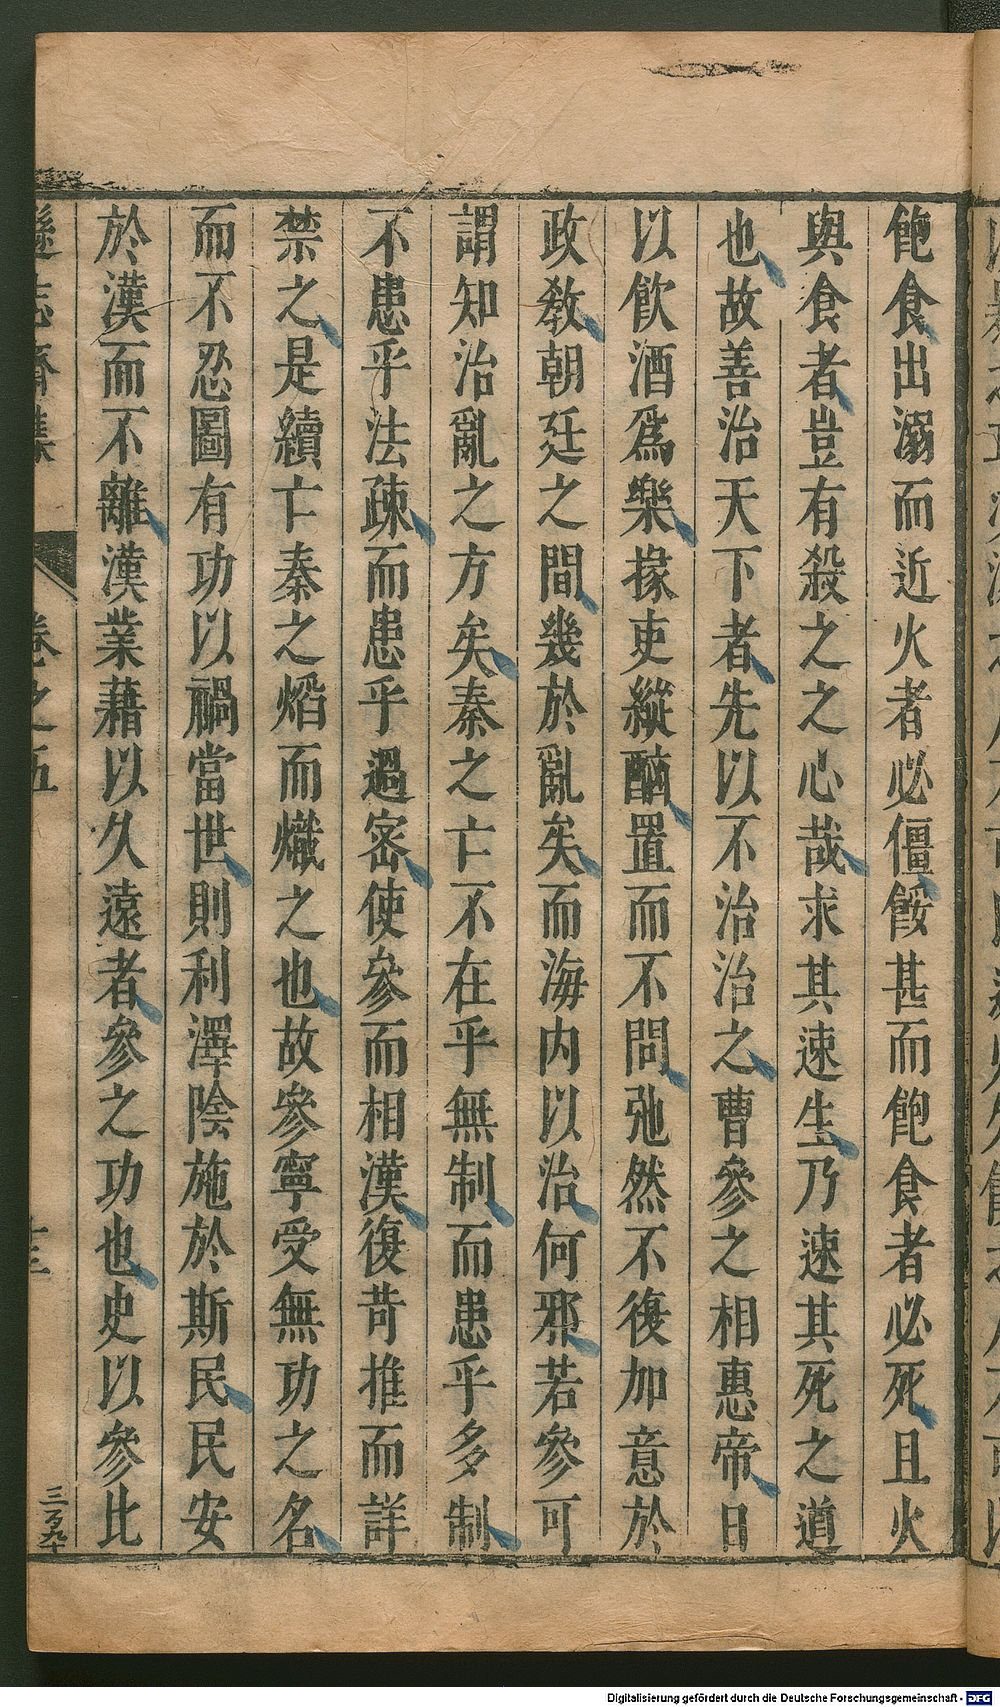 飽食出溺而近火者必僵餒甚而飽食者必死且火
與食者豈有殺之之心哉求其速生乃速其死之道
也故善治天下者先以不治治之曹參之相惠帝日
以飲酒爲樂掾吏縱酗置而不問弛然不復加意於
政教朝廷之間幾於亂矣而海内以治何邪若參可
謂知治亂之方矣秦之亡不在乎無制而患乎多制
不患乎法疎而患乎過密使參而相漢復苛推而詳
禁之是續亡秦之熖而熾之也故參寧受無功之名
而不忍圖有功以禍當世則利澤陰施於斯民民安
於漢而不離漢業藉以久遠者參之功也史以參比
遜志齋集
卷之五
十三
三百九十
Digitalisierung gefördert durch die Deutsche Forschungsgemeinschaft - DFG